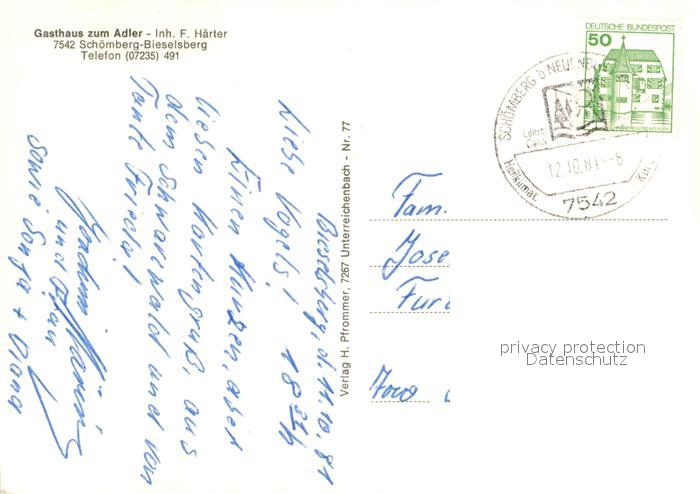 Gasthaus zum Adler - Inh. F. Härter
7542 Schömberg-Bieselsberg
Telefon (07235) 491
Bieselsberg, d. 11.10.81
Liebe Vogels! 18 24h
Einen kurzen, aber
lieben Kartengruß, aus
dem Schwarzwald und von
Tante Frieda!
Joachim
und Frau
sowie Sonja + Diana
Verlag H. Pfrommer, 7267 Unterreichenbach - Nr. 77
DEUTSCHE BUNDESPOST
50
SCHÖMBERG b NEUEN
Ldkrs. Calw
12.10.81--8
Heilklimat. Kur
7542
Fam.
Jose
Fur
privacy protection
Datenschutz